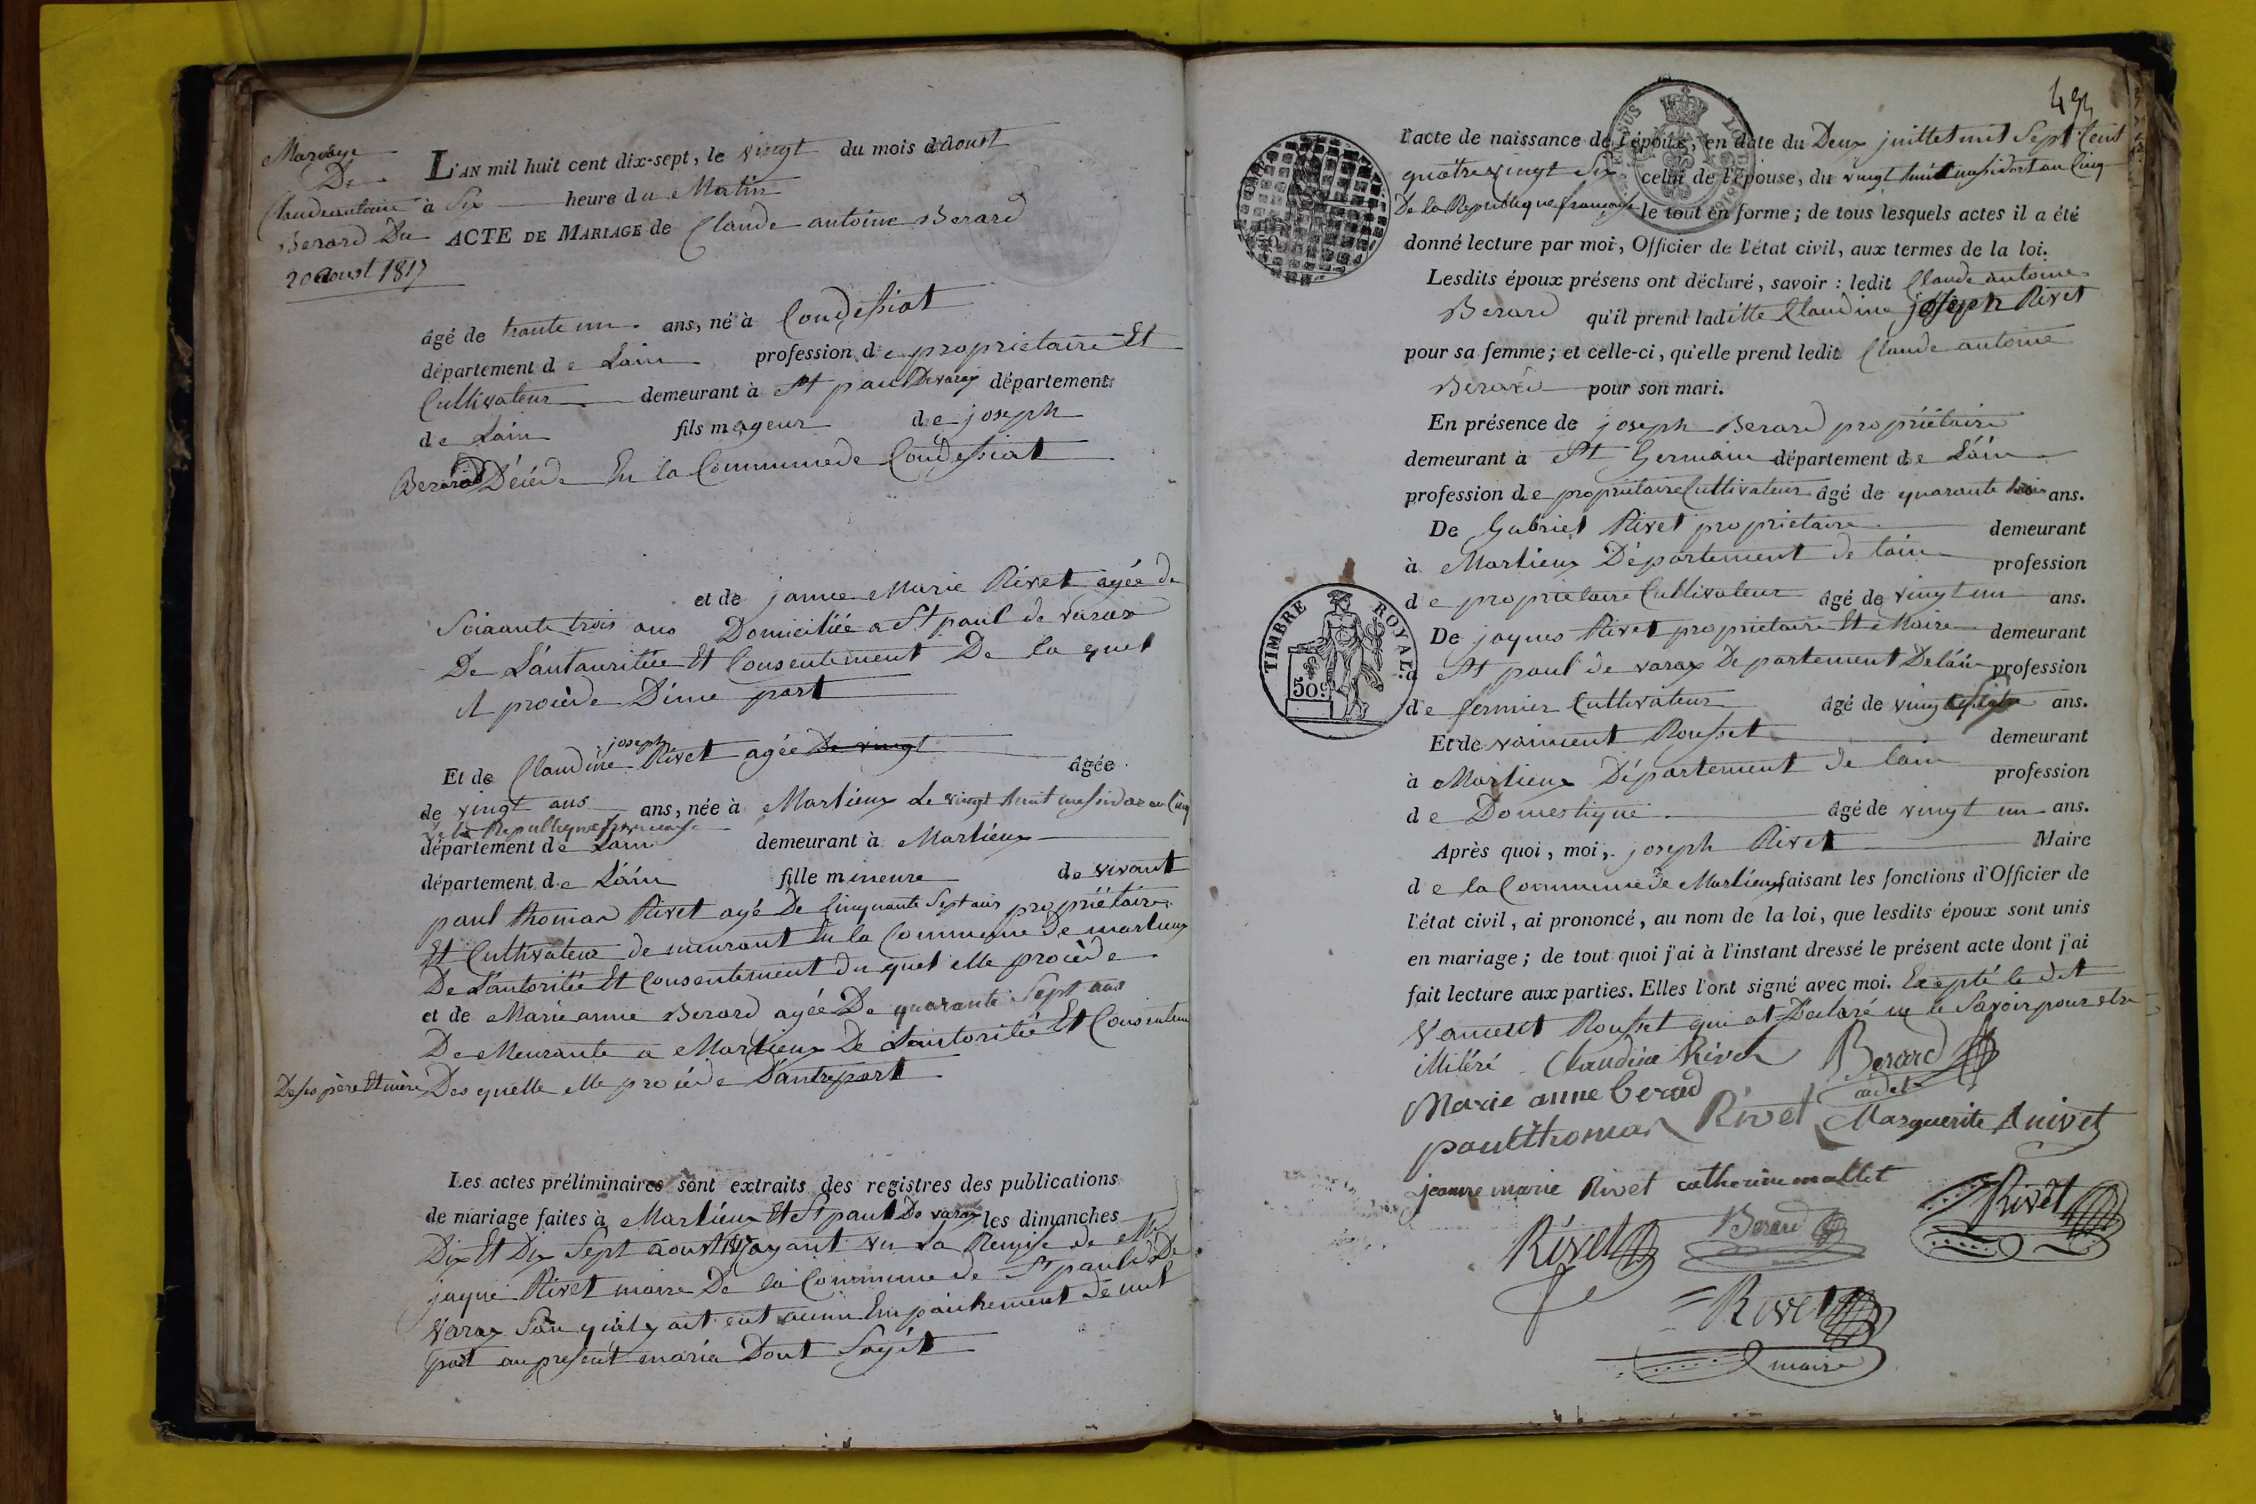 Mariage
De
Claude antoine
Berard Du
20 aoust 1817
L'AN mil huit cent dix-sept, le vingt du mois d'aoust
à Six heure du Matin
ACTE DE MARIAGE de Claude antoine Berard
âgé de trante un ans, né à Condessiat
département de Lain profession de propriétaire Et
Cultivateur demeurant à St paul Devarax département
de Lain fils mageur de joseph
Berard Décédé En la Commune de Condessiat
et de janne Marie Rivet agée de
Soixante trois ans Domiciliée a St paul de varax
De L'antauritiée Et Consentement De la quel
il procède D'une part
Et de Claudine joseph Rivet agée De vingt âgée
de vingt ans ans, née à Marlieux Le vingt huit messidor an Cinq
de la Republique francaise
département de Lain demeurant à Marlieux
département de Lain fille mineure de vivant
paul thomas Rivet agé De Cinquante Sept ans propriétaire
Et Cultivateur demeurant En la Commune de marlieux
De L'antoritée Et Consentement du quel elle procède
et de Marieanne Berard agée De quarante Sept ans
De Meurante a Marlieux De L'antoritée Et Consentem
De ses père Et mère Des quelle elle procède D'antre part
Les actes préliminaires sont extraits des registres des publications
de mariage faites à Marlieux Et St paul De varax les dimanches
Dix Et Dix Sept aoust 1817 ayant vu La Remise de Mr
jaque Rivet maire De la Commune de St paul De
Varax San qu'il y ait eut aucun Empaichement de nul
part au présent maria Dont Sagit
494
l'acte de naissance de l'époux, en date du Deux juillet mil Sept Cent
quatre vingt Six celui de l'épouse, du vingt huit messidort an Cinq
De la Republique française le tout en forme; de tous lesquels actes il a été
donné lecture par moi, Officier de l'état civil, aux termes de la loi.
Lesdits époux présens ont déclaré, savoir : ledit Claude antoine
Berard qu'il prend laditte Claudine joseph Rivet
pour sa femme; et celle-ci, qu'elle prend ledit Claude antoine
Berard pour son mari.
En présence de joseph Berard propriétaire
demeurant à St Germain département de Lain
profession de propriétaire Cultivateur âgé de quarante trois ans.
De Gabriel Rivet propriétaire demeurant
à Marlieux Département de lain profession
de propriétaire Cultivateur âgé de vingt un ans.
De jaques Rivet propriétaire Et Maire demeurant
à St paul de varax Departement De lain profession
de fermier Cultivateur âgé de vingt ans.
Et de vaincent Rousset demeurant
à Marlieux Département de lain profession
de Domestique âgé de vingt un ans.
Après quoi, moi, joseph Rivet Maire
de la Commune de Marlieux faisant les fonctions d'Officier de
l'état civil, ai prononcé, au nom de la loi, que lesdits époux sont unis
en mariage; de tout quoi j'ai à l'instant dressé le présent acte dont j'ai
fait lecture aux parties. Elles l'ont signé avec moi. Excepté le dit
Vancent Rousset qui at Déclaré ne le Savoir pour etre
illiteré Claudine Rivet Berard
cadet
Marie anne berard
paul thomas Rivet Marguerite Anivet
jeanne marie Rivet catherine mallet
Rivet Berard Rivet
Rivet
maire
TIMBRE ROYAL.
50c